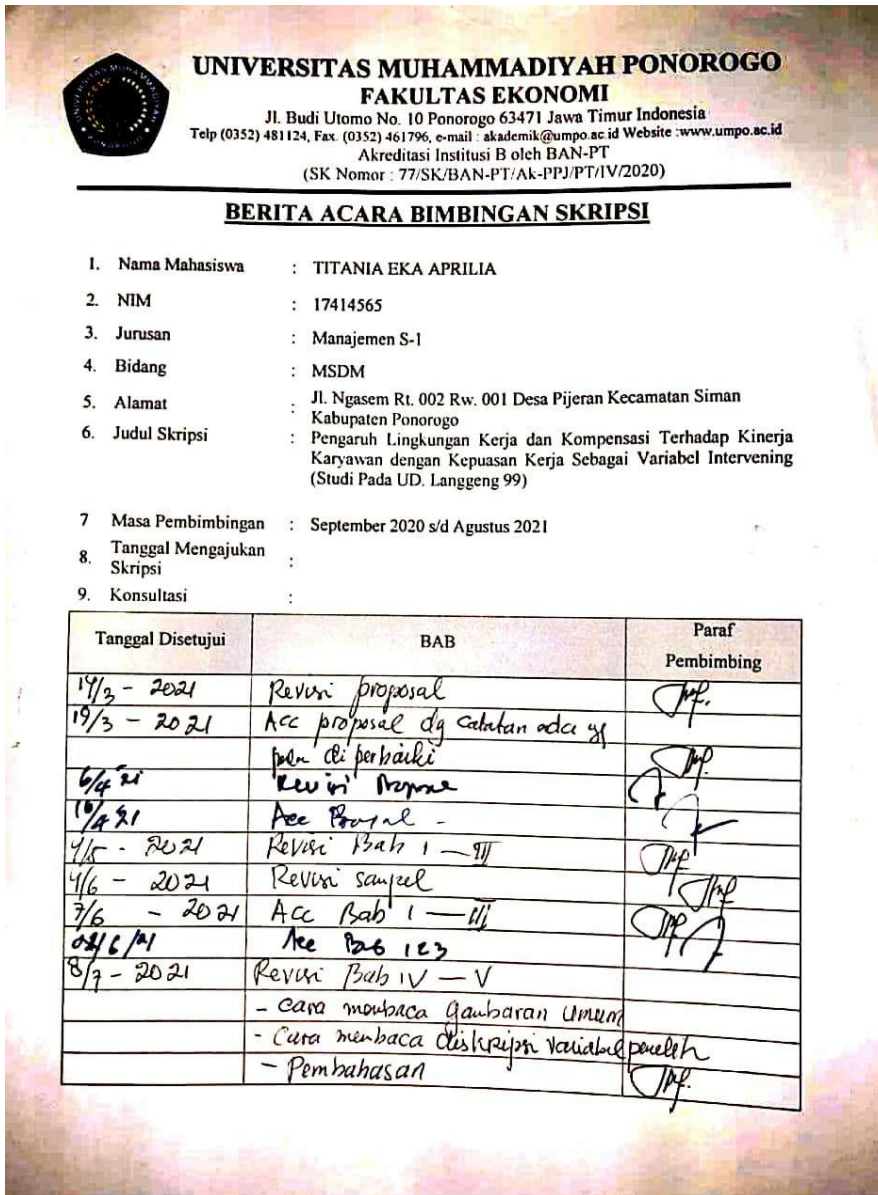 UNIVERSITAS MUHAMMADIYAH PONOROGO
FAKULTAS EKONOMI
Jl. Budi Utomo No. 10 Ponorogo 63471 Jawa Timur Indonesia
Telp (0352) 481124, Fax. (0352) 461796, e-mail : akademik@umpo.ac.id Website :www.umpo.ac.id
Akreditasi Institusi B oleh BAN-PT
(SK Nomor : 77/SK/BAN-PT/Ak-PPJ/PT/IV/2020)
BERITA ACARA BIMBINGAN SKRIPSI
1. Nama Mahasiswa : TITANIA EKA APRILIA
2. NIM : 17414565
3. Jurusan : Manajemen S-1
4. Bidang : MSDM
5. Alamat : Jl. Ngasem Rt. 002 Rw. 001 Desa Pijeran Kecamatan Siman
Kabupaten Ponorogo
6. Judul Skripsi : Pengaruh Lingkungan Kerja dan Kompensasi Terhadap Kinerja
Karyawan dengan Kepuasan Kerja Sebagai Variabel Intervening
(Studi Pada UD. Langgeng 99)
7 Masa Pembimbingan : September 2020 s/d Agustus 2021
8. Tanggal Mengajukan
Skripsi :
9. Konsultasi :
Tanggal Disetujui BAB Paraf
Pembimbing
- 2021 Revisi proposal
19/3 - 2021 Acc proposal dg catatan ada yg
di perbaiki
6/4 21 Revisi
Acc
4/5 - 2021 Revisi Bab I - III
4/6 - 2021 Revisi sampel
7/6 - 2021 Acc Bab I - III
Acc Bab 1 2 3
8/7 - 2021 Revisi Bab IV - V
- Cara membaca gambaran umum
- Cara membaca diskripsi variabel
- Pembahasan